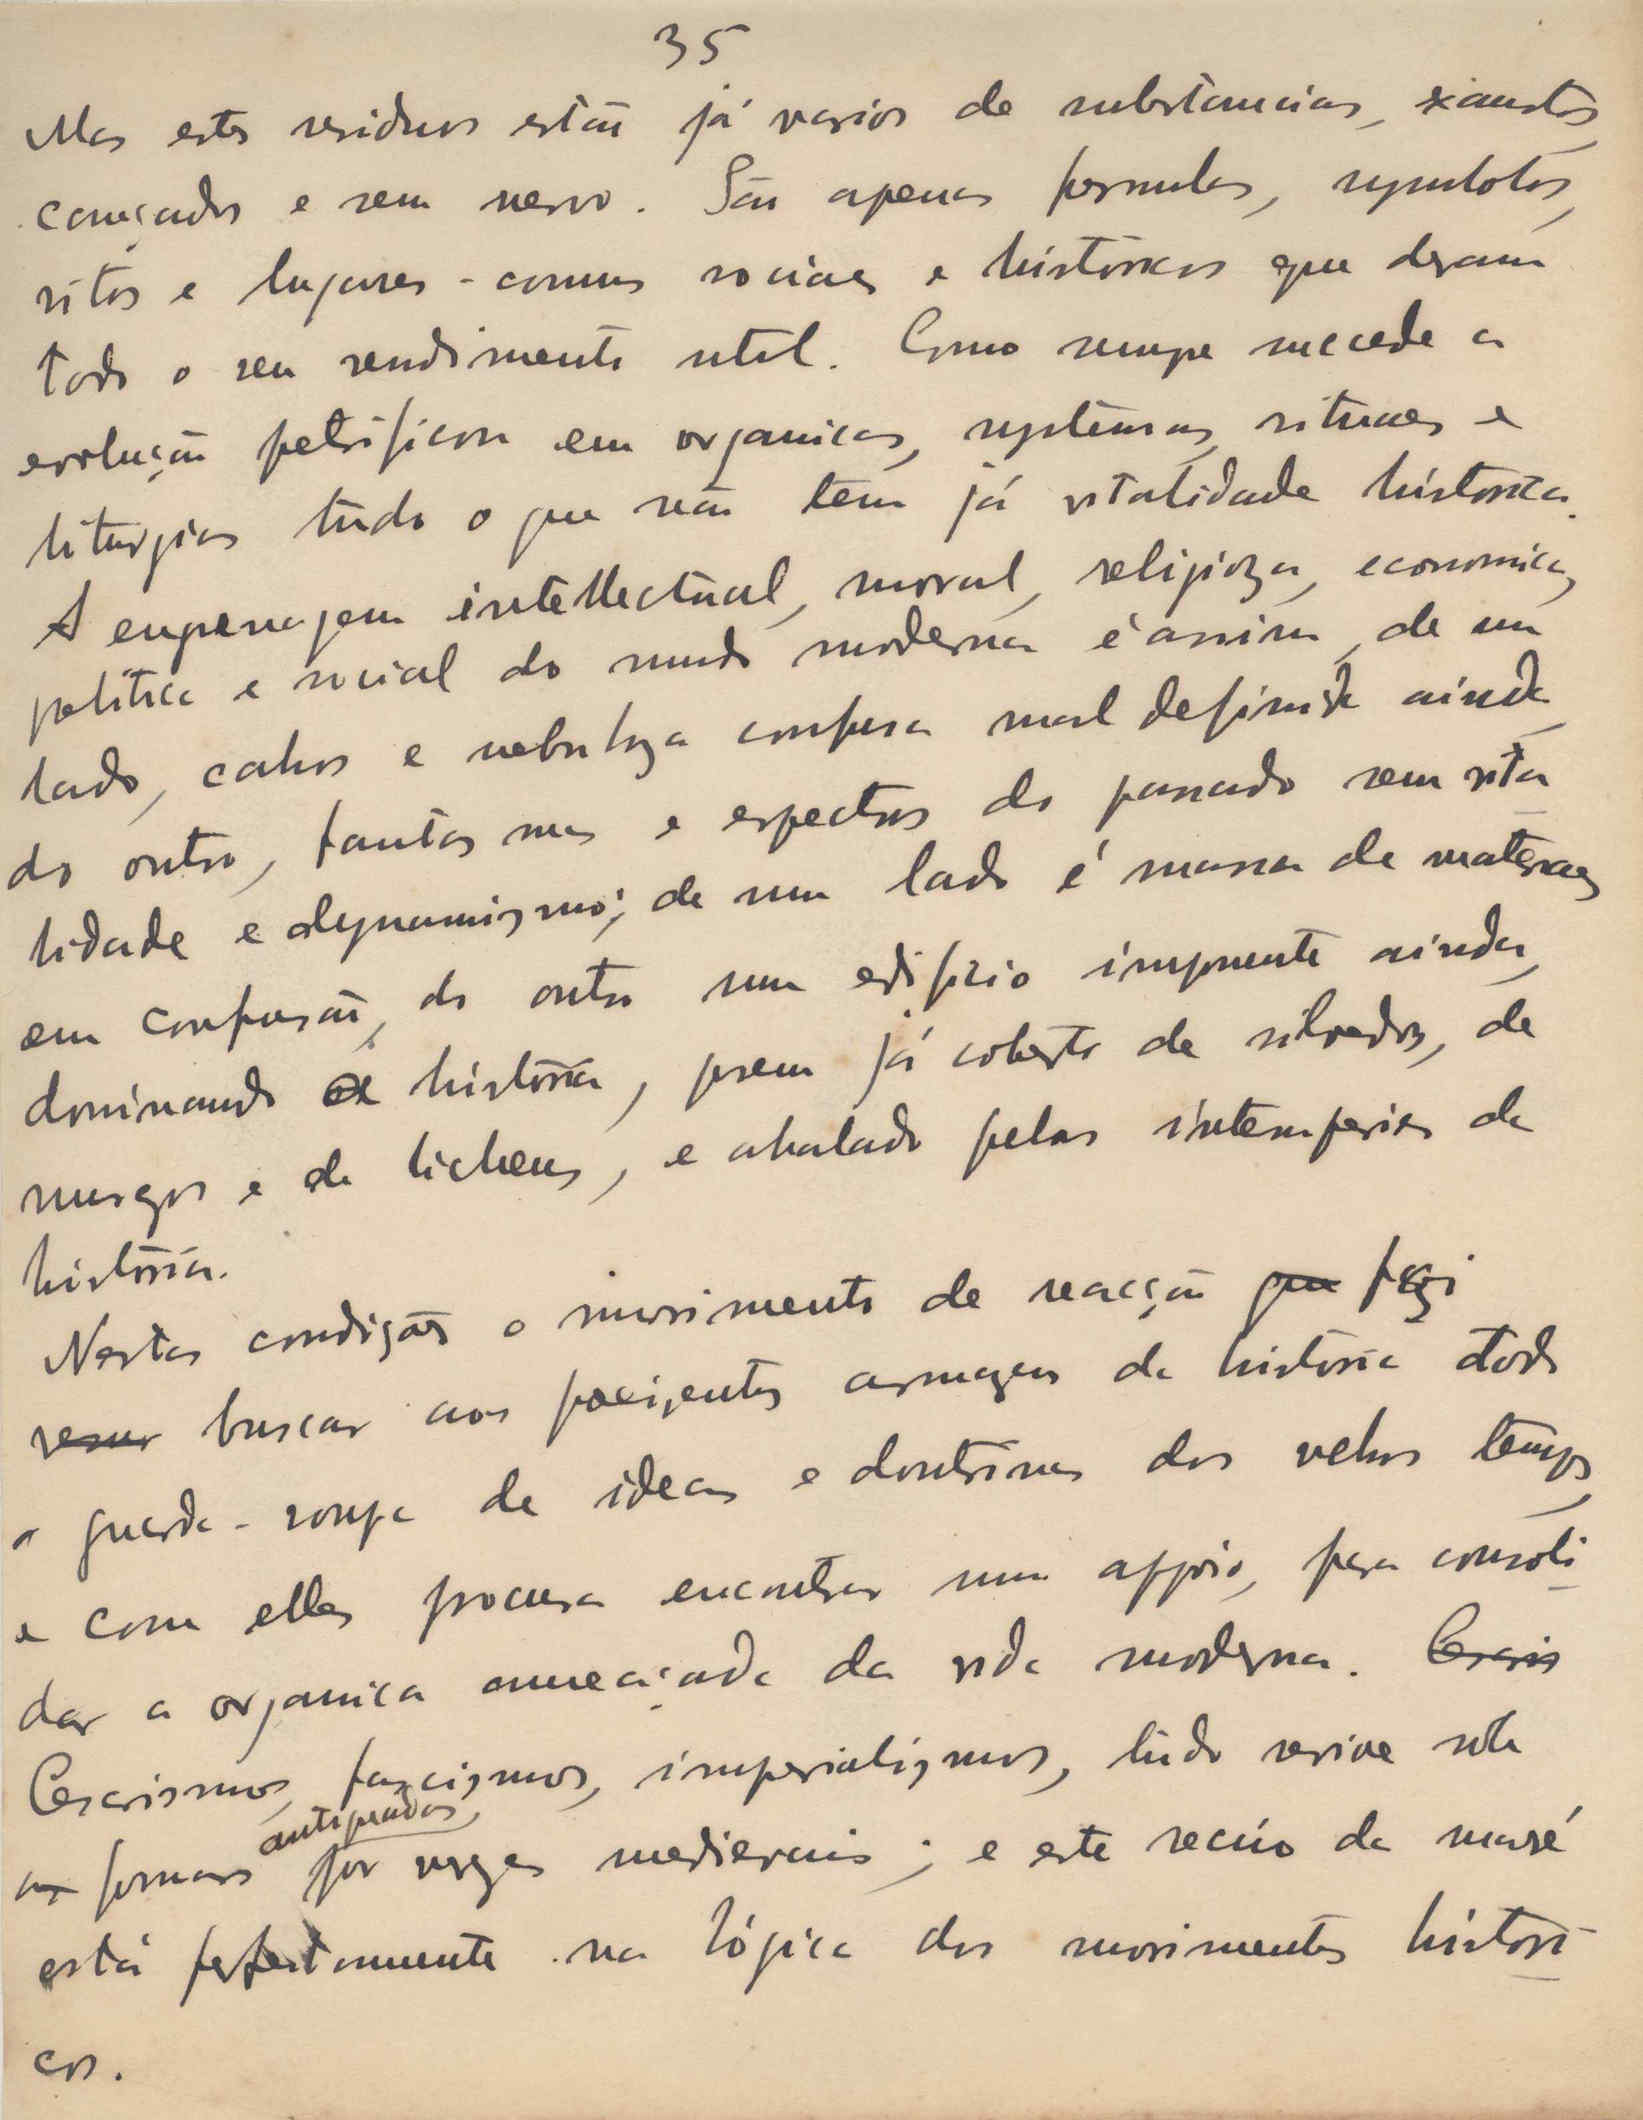 35
Mas estes residuos estão já vasios de substancias, exaustos,
cançados e sem nervo. São apenas formulas, symbolos,
ritos e lugares-comuns sociaes e historicos que deram
todo o seu rendimento util. Como sempre succede a
evolução petrificou em organicas, systemas, rituaes e
liturgias tudo o que não tem já vitalidade historica.
A engrenagem intellectual, moral, religioza, economica,
politica e social do mundo moderna é assim, de um
lado, cahos e nebuloza confusa mal definida ainda,
do outro, fantasmas e espectros do passado sem vita
lidade e dynamismo; de um lado é massa de materiaes
em confusão, do outro um edificio imponente ainda,
dominando a historia, porem já coberto de silvedos, de
musgos e de lichens, e abalado pelas intemperies da
historia.
Nestas condições o movimento de reacção que foi
buscar aos armazens da historia todo
o guarda-roupa de ideas e doutrinas dos velhos tempos,
e com elles procura encontrar um appoio, para consoli-
dar a organica ameaçada da vida moderna. Cesaris
Cesarismos, fascismos, imperialismos, tudo revive sob
as formas antiquadas, por vezes medievais; e este recúo da maré
está perfeitamente na lógica dos movimentos histori-
cos.